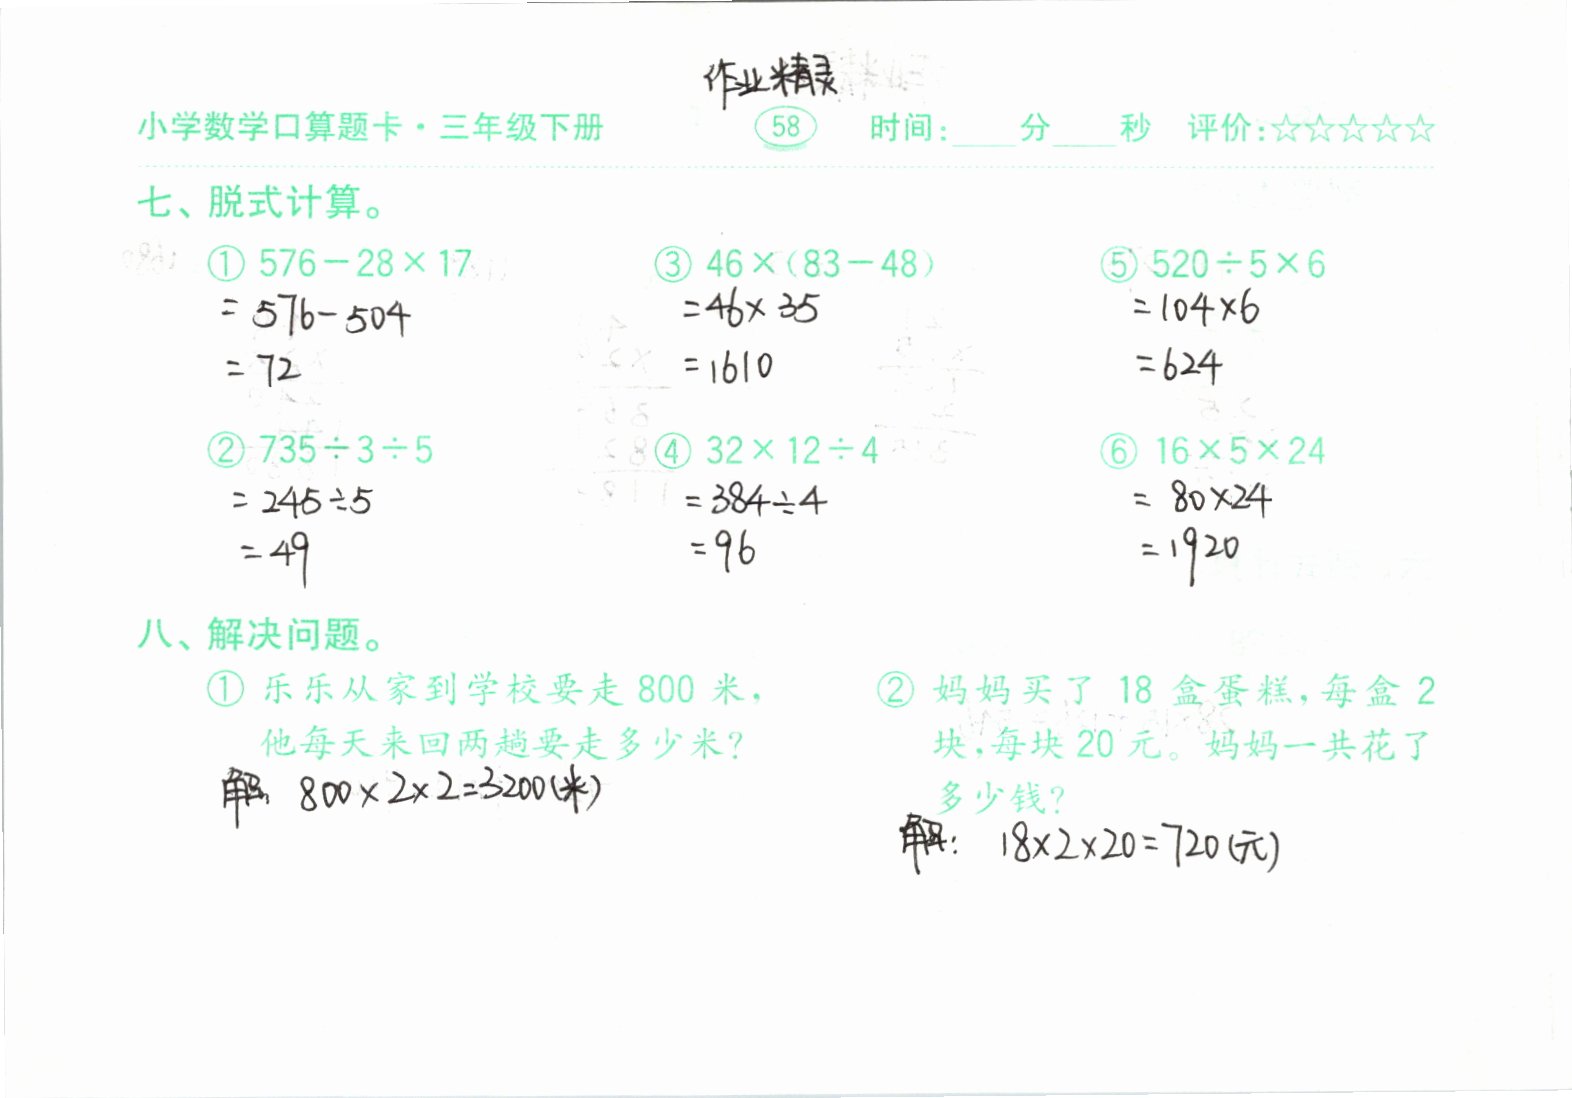 作业精灵
小学数学口算题卡·三年级下册 58 时间:____分____秒 评价:☆☆☆☆☆
七、脱式计算。
① 576-28×17 ③ 46×(83-48) ⑤ 520÷5×6
=576-504 =46×35 =104×6
=72 =1610 =624
② 735÷3÷5 ④ 32×12÷4 ⑥ 16×5×24
=245÷5 =384÷4 =80×24
=49 =96 =1920
八、解决问题。
① 乐乐从家到学校要走 800 米,
他每天来回两趟要走多少米?
解: 800×2×2=3200(米)
② 妈妈买了 18 盒蛋糕,每盒 2
块,每块 20 元。妈妈一共花了
多少钱?
解: 18×2×20=720(元)